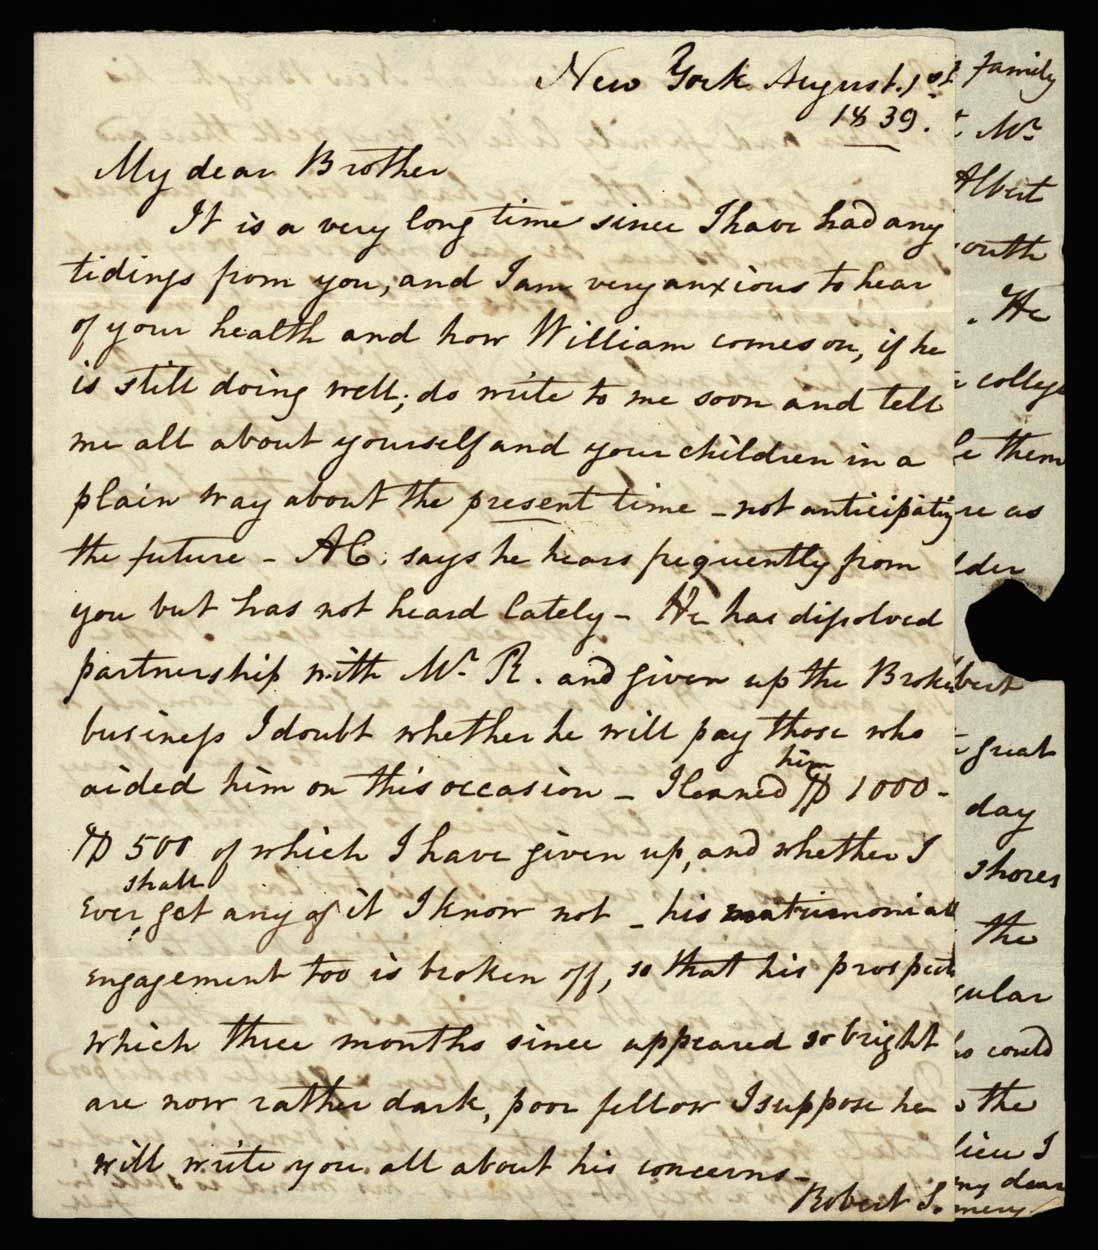 New York August. 1st
1839.
My dear Brother
It is a very long time since I have had any
tidings from you, and I am very anxious to hear
of your health and how William comes on, if he
is still doing well; do write to me soon and tell
me all about yourself and your children in a
plain way about the present time - not anticipating
the future - AC. says he hears frequently from
you but has not heard lately - He has dissolved
partnership with Mr. R. and given up the Broke
business I doubt whether he will pay those who
aided him on this occasion - I loaned him $ 1000 -
$ 500 of which I have given up, and whether I
ever, shall get any of it I know not - his matrimonial
engagement too is broken off, so that his prospects
which three months since appeared so bright
are now rather dark, poor fellow I suppose he
will write you all about his concerns -
Robert S.
family
Mr
Albert
outh
. He
college
them
re as
lder
bert
great
day
shores
the
cular
could
the
lieu I
my dear